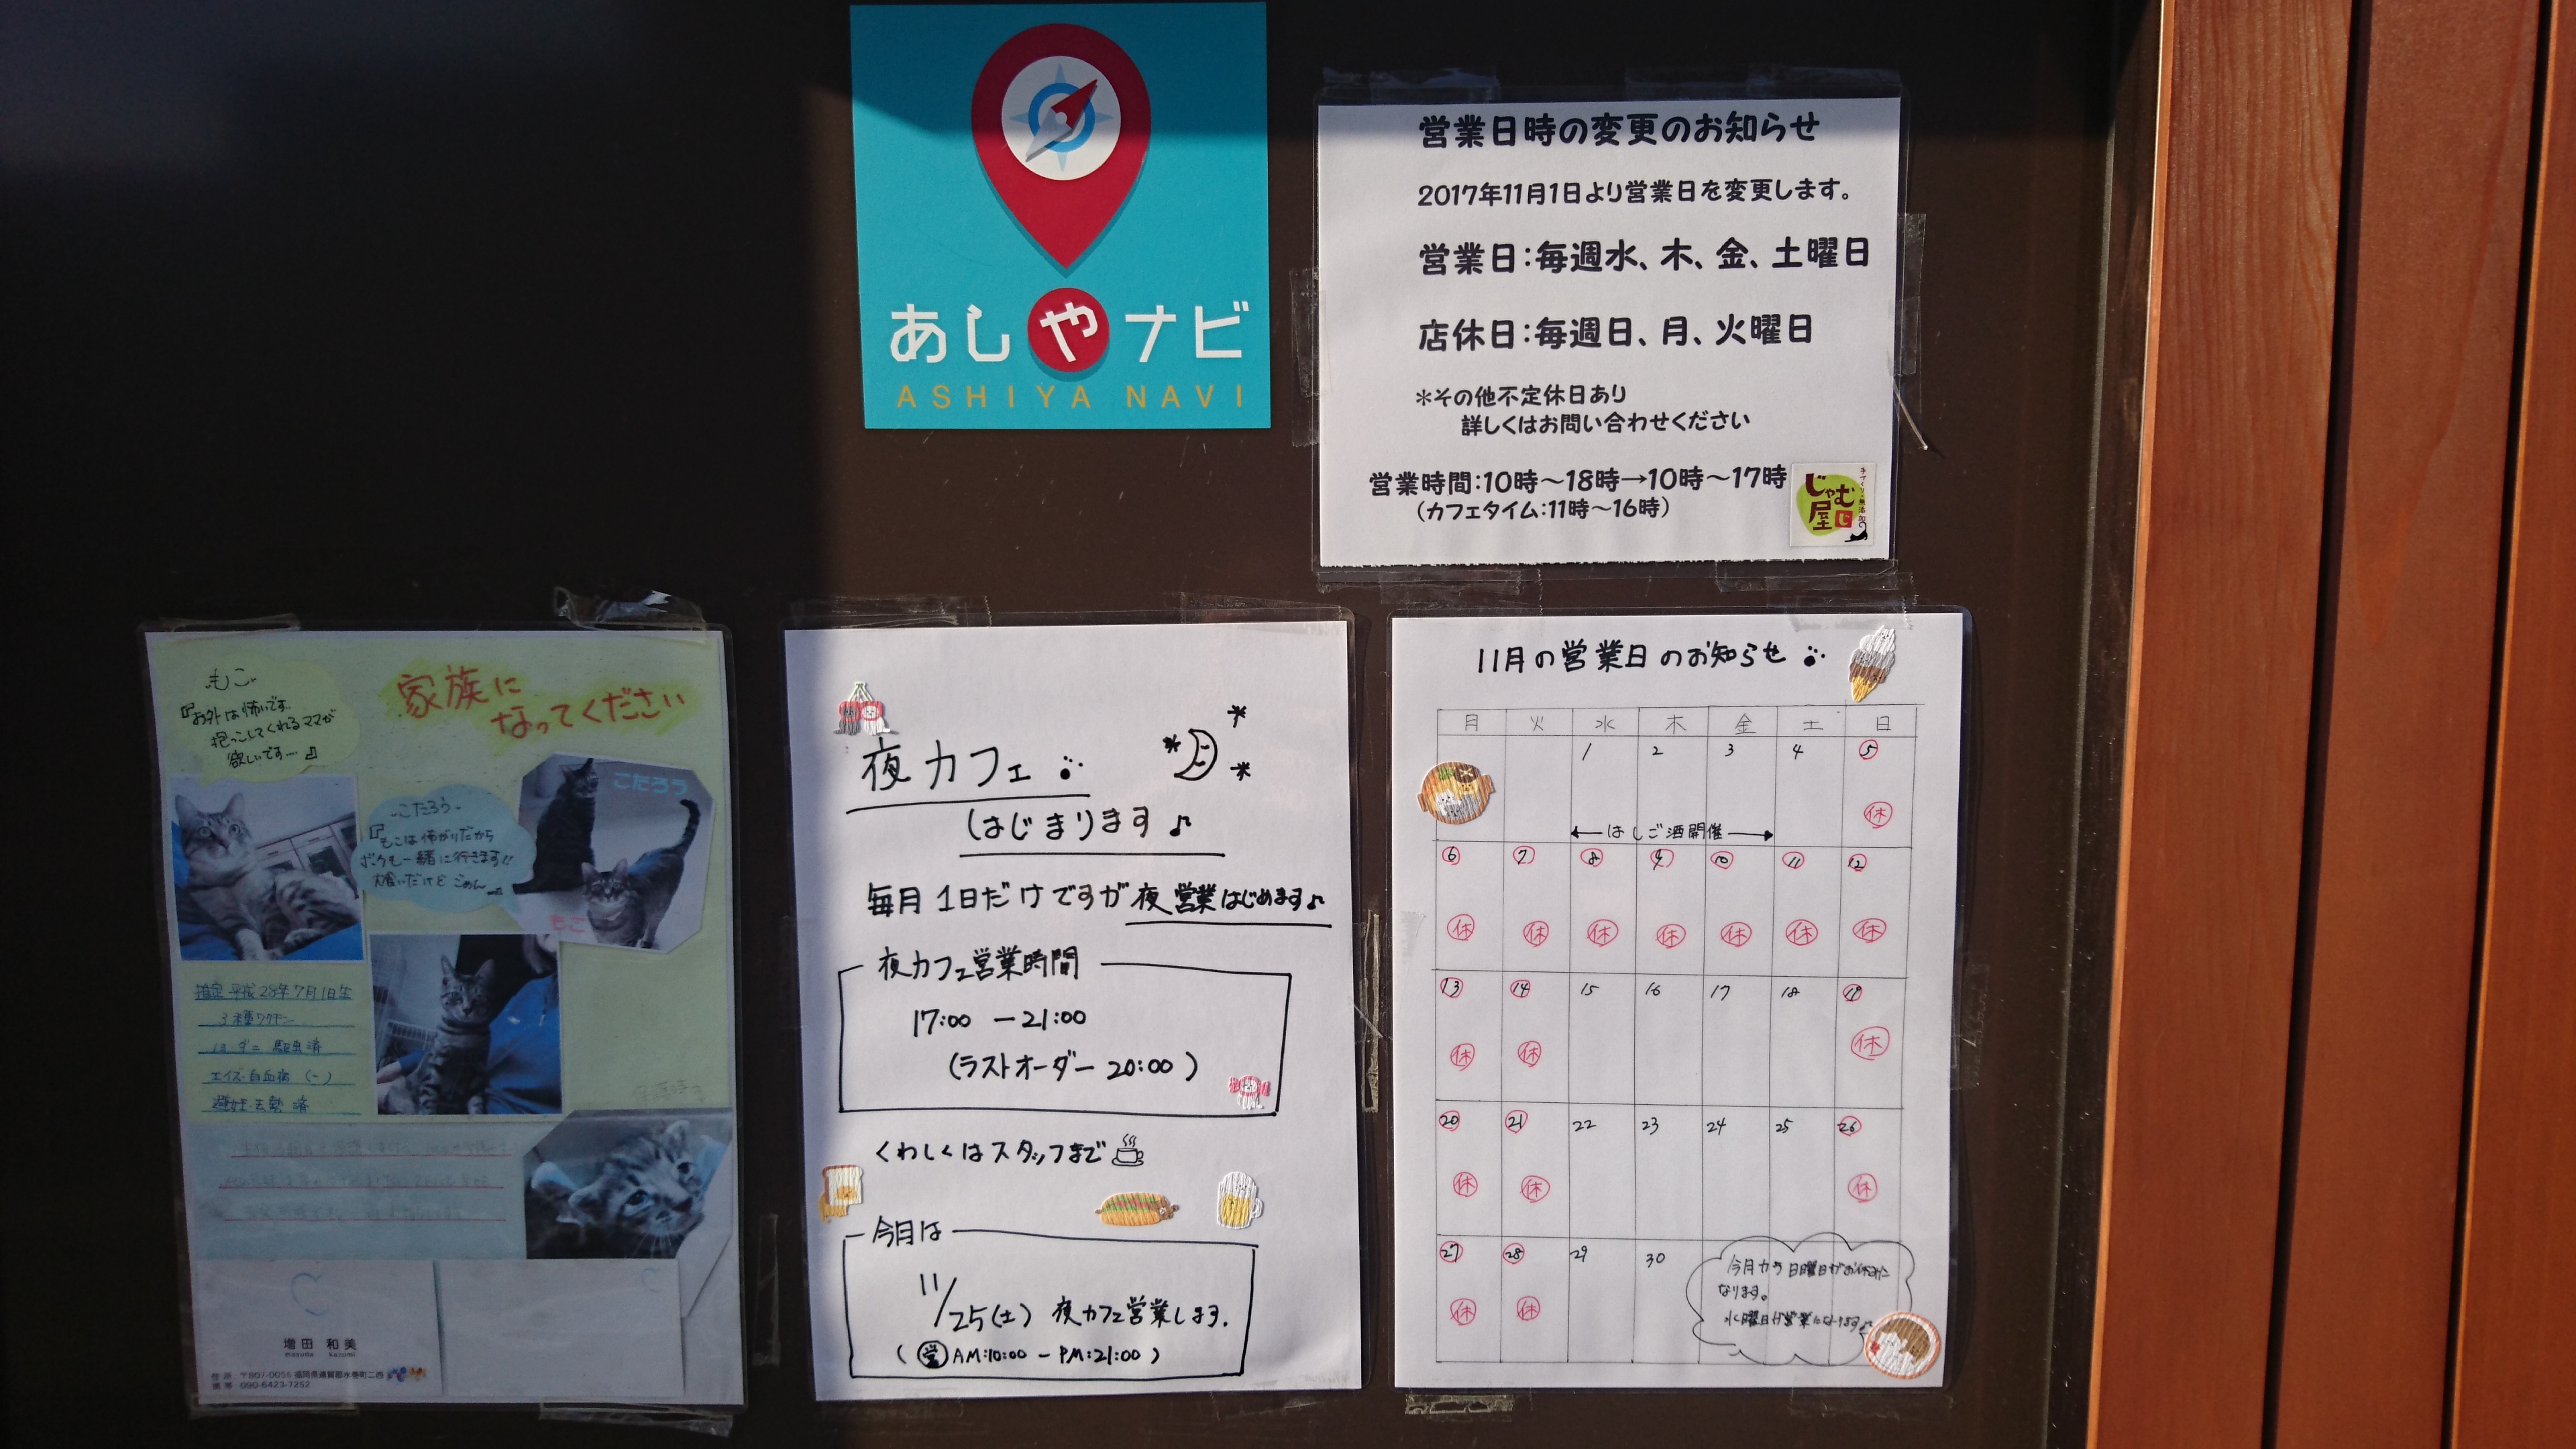 あしやナビ
ASHIYA NAVI
営業日時の変更のお知らせ
2017年11月1日より営業日を変更します。
営業日:毎週水、木、金、土曜日
店休日:毎週日、月、火曜日
*その他不定休日あり
詳しくはお問い合わせください
営業時間:10時～18時→10時～17時
(カフェタイム:11時～16時)
手づくり・無添加
じゃむ屋
家族に
なってください
もこ
『お外は怖いです。
抱っこしてくれるママが
欲しいです…』
-こたろう-
『もこは怖がりだから
ボクも一緒に行きます!!
ごめん
こたろう
もこ
推定 平成28年7月1日生
3種ワクチン
ノミ・ダニ 駆虫済
エイズ・白血病 (-)
避妊・去勢 済
増田 和美
masuda kazumi
住所 〒807-0055 福岡県遠賀郡水巻町二西
携帯 090-6423-7252
夜カフェ
はじまります♪
毎月1日だけですが夜営業はじめます♪
夜カフェ営業時間
17:00 ー 21:00
(ラストオーダー 20:00)
くわしくはスタッフまで
今月は
11/25(土) 夜カフェ営業します.
(営AM:10:00 - PM:21:00)
11月の営業日のお知らせ
月 火 水 木 金 土 日
1 2 3 4 5
休
はしご酒開催
6 7 8 9 10 11 12
休 休 休 休 休 休 休
13 14 15 16 17 18 19
休 休 休
20 21 22 23 24 25 26
休 休 休
27 28 29 30
休 休
今月から日曜日がお休みに
なります。
水曜日が営業になります♪